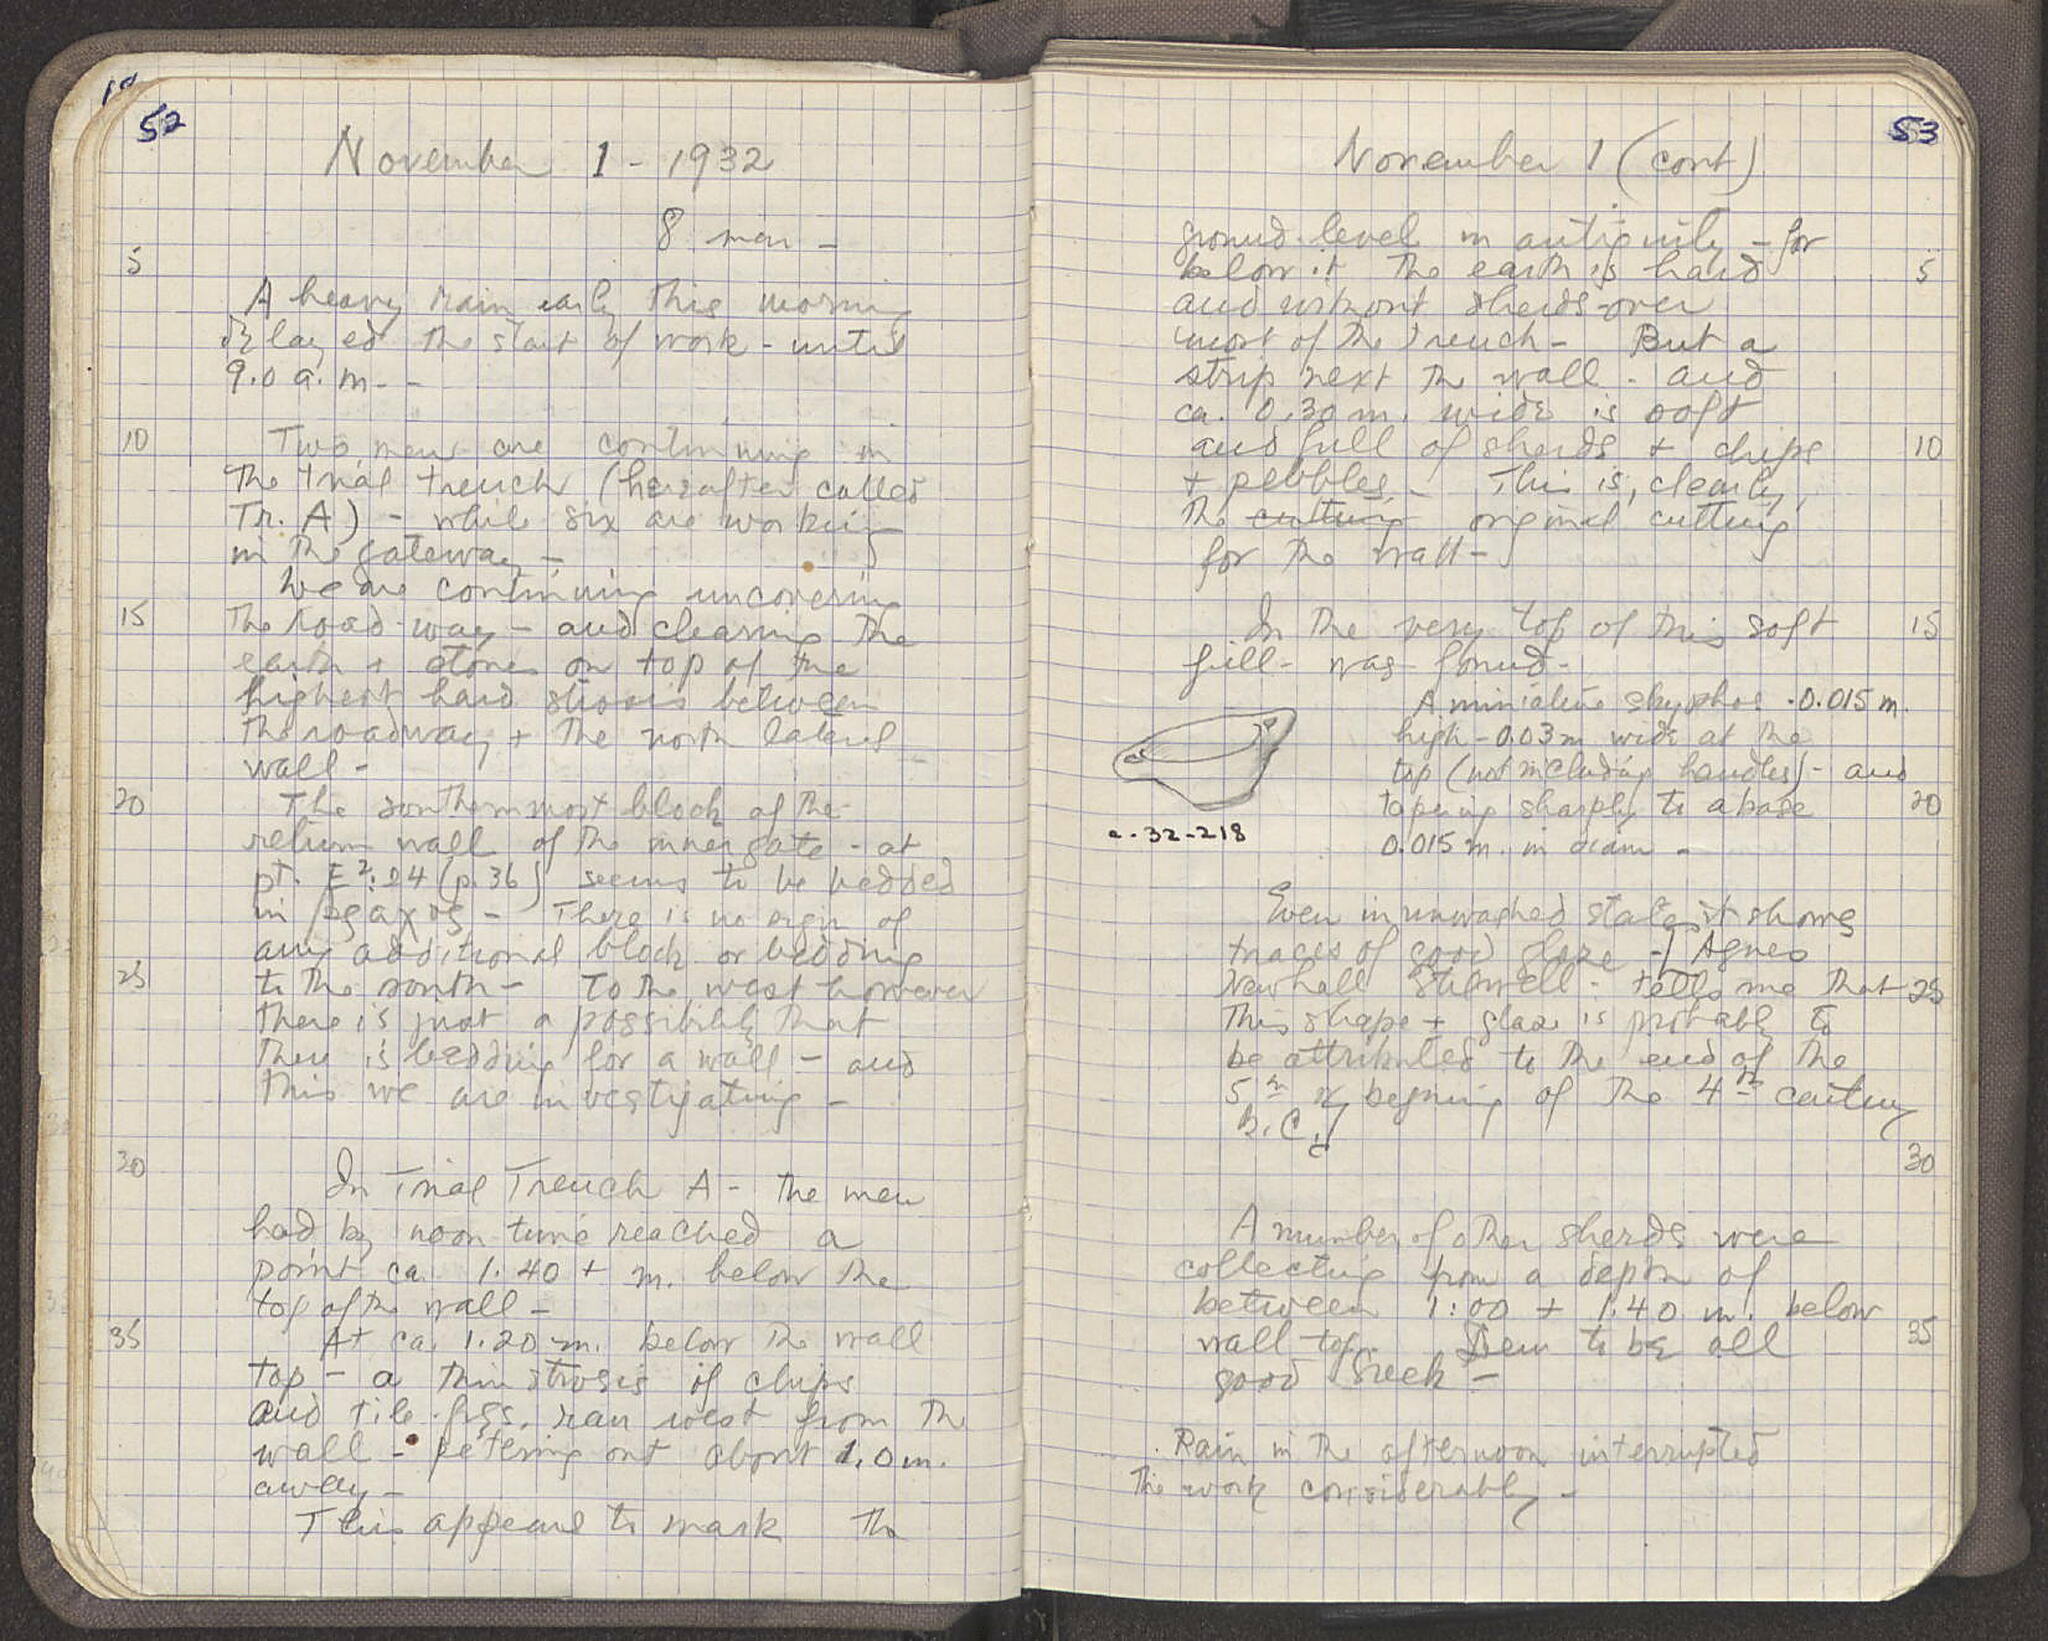 52
November 1 - 1932
8 men -
5
A heavy rain early this morning
delayed the start of work - until
9.0 a.m. -
10
Two men are continuing in
the trial trench (hereafter called
Tr. A) - while six are working
in the gateway -
We are continuing uncovering
15
the road-way - and clearing the
earth + stones on top of the
highest hard strosis between
the roadway + the north lateral
wall -
20
The southernmost block of the
return wall of the inner gate - at
pt. E²:24 (p. 36) seems to be bedded
in - There is no sign of
any additional block or bedding
25
to the south - To the west however
there is just a possibility that
there is bedding for a wall - and
this we are investigating -
30
In Trial Trench A - the men
had by noon time reached a
point ca. 1.40 + m. below the
top of the wall -
35
At ca. 1.20 m. below the wall
top - a thin strosis of chips
and tile frgs. ran west from the
wall - petering out about 1.0 m.
away -
This appears to mark the
53
November 1 (cont)
ground level in antiquity - for
below it the earth is hard
5
and without sherds over
most of the trench - But a
strip next the wall - and
ca. 0.30 m. wide is soft
and full of sherds + chips
10
+ pebbles - This is, clearly,
the cutting original cutting
for the wall -
In the very top of this soft
15
fill - was found -
A miniature skyphos - 0.015 m.
high - 0.03 m wide at the
top (not including handles) - and
tapering sharply to a base
20
0.015 m. in diam -
c-32-218
Even in unwashed state it shows
traces of good glaze - [Agnes
Newhall Stillwell - tells me that
25
this shape + glaze is probably to
be attributed to the end of the
5th or begining of the 4th century
B.C.]
30
A number of other sherds were
collecting from a depth of
between 1:00 + 1.40 m. below
wall top. Seem to be all
35
good Greek -
Rain in the afternoon interrupted
the work considerably -